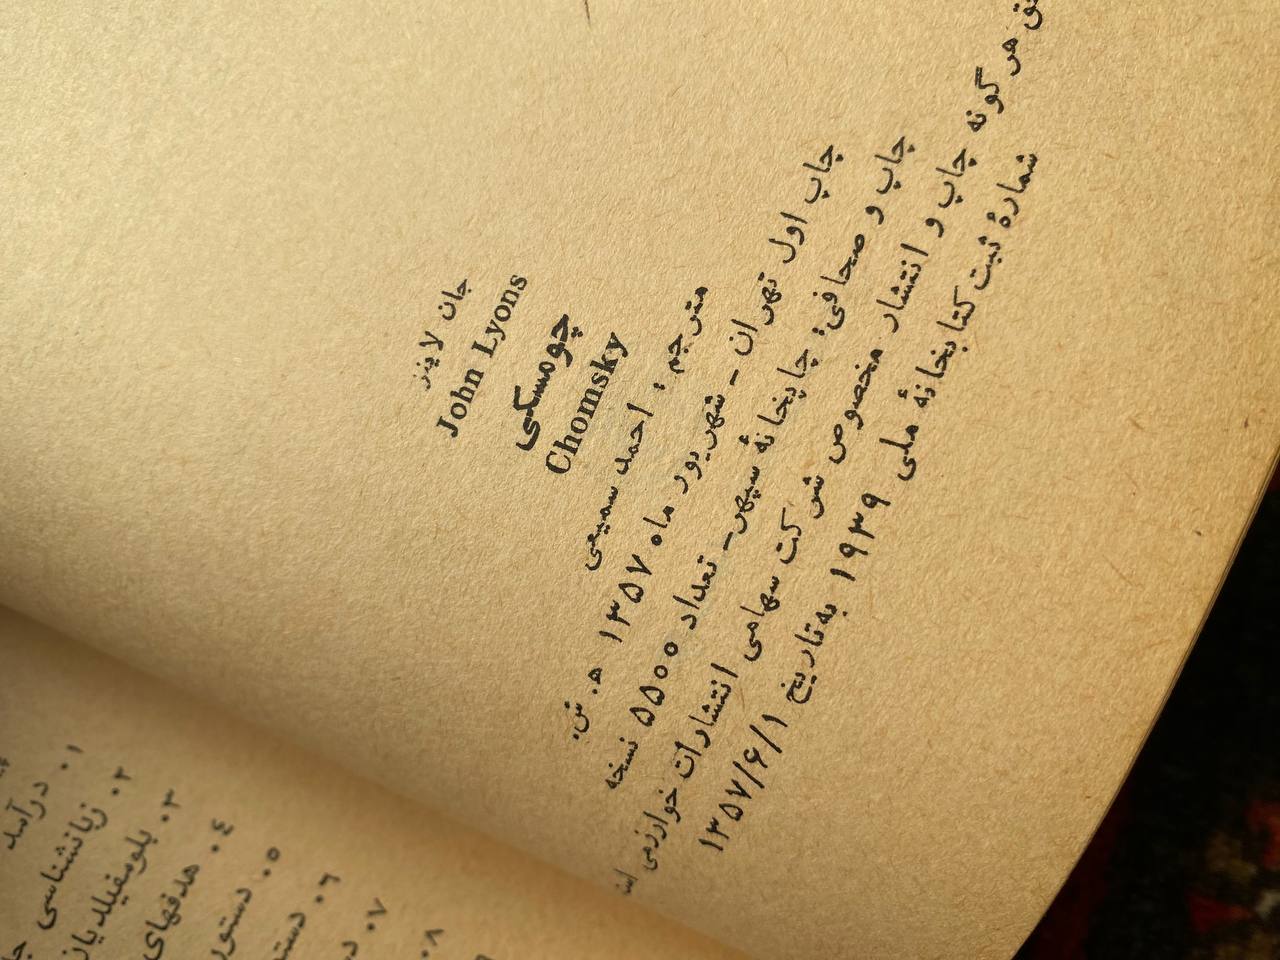 جان لاینز
John Lyons
چومسکی
Chomsky
مترجم: احمد سمیعی
چاپ اول تهران - شهریور ماه ۱۳۵۷ ه. ش.
چاپ و صحافی: چاپخانهٔ سپهر - تعداد ۵۵۰۰ نسخه
هر گونه چاپ و انتشار مخصوص شرکت سهامی انتشارات خوارزمی
شمارهٔ ثبت کتابخانهٔ ملی ۱۹۳۹ به‌تاریخ ۱۳۵۷/۶/۱
۱. درآمد
۲. زبانشناسی
۳. بلومفیلدیان
۴. هدفهای
۵. دستور
۶.
۷.
۸.